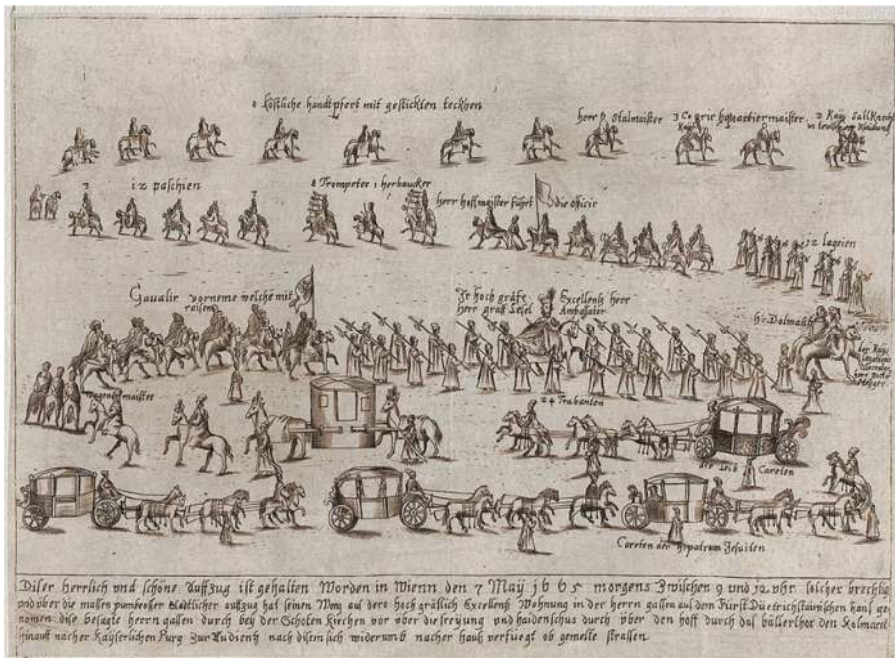 8 köstliche handtpfert mit gestickten teckhen
herr Stalmaister
3 Co
quartiermaister
2 Kay
Sallknecht
in
Kleidung
12 paschien
8 Trompeter 1 herbaucker
herr hoffmaister füret die officir
12 lageien
Cavalir vorneme welche mit
raisen
Ir hoch gräfe Excellentz herr
herr graff Lesel Ambasator
hr Dolmatsch
der Kay
herr
Wagenmaister
24 Trabanten
die Leib Careten
Careten der hr patrum Jesuiten
Diser herrlich vnd schöne Auffzug ist gehalten Worden in Wienn den 7 Maÿ 1665 morgens Zwischen 9 und 12 vhr solcher brechtig
vnd vber die massen pumboser Stadtlicher auffzug hat seinen Weg auf dero hoch gräflich Excellentz Wohnung in der herrn gassen aus dem Fürst Düetrichstainischen haus ge
nomen dise besagte herrn gassen durch bej der Schoten Kirchen vor vber die freyung vnd haidenschus durch vber den hoff durch das bällerthor den Kolmarck
hinauff nacher Kayserlichen Purg Zur Audientz nach disem sich widerumb nacher hauß verfuegt ob gemelte strassen